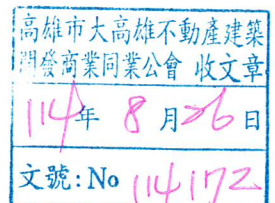 高雄市大高雄不動產建築
開發商業同業公會 收文章
114年 8月26日
文號:No 114172